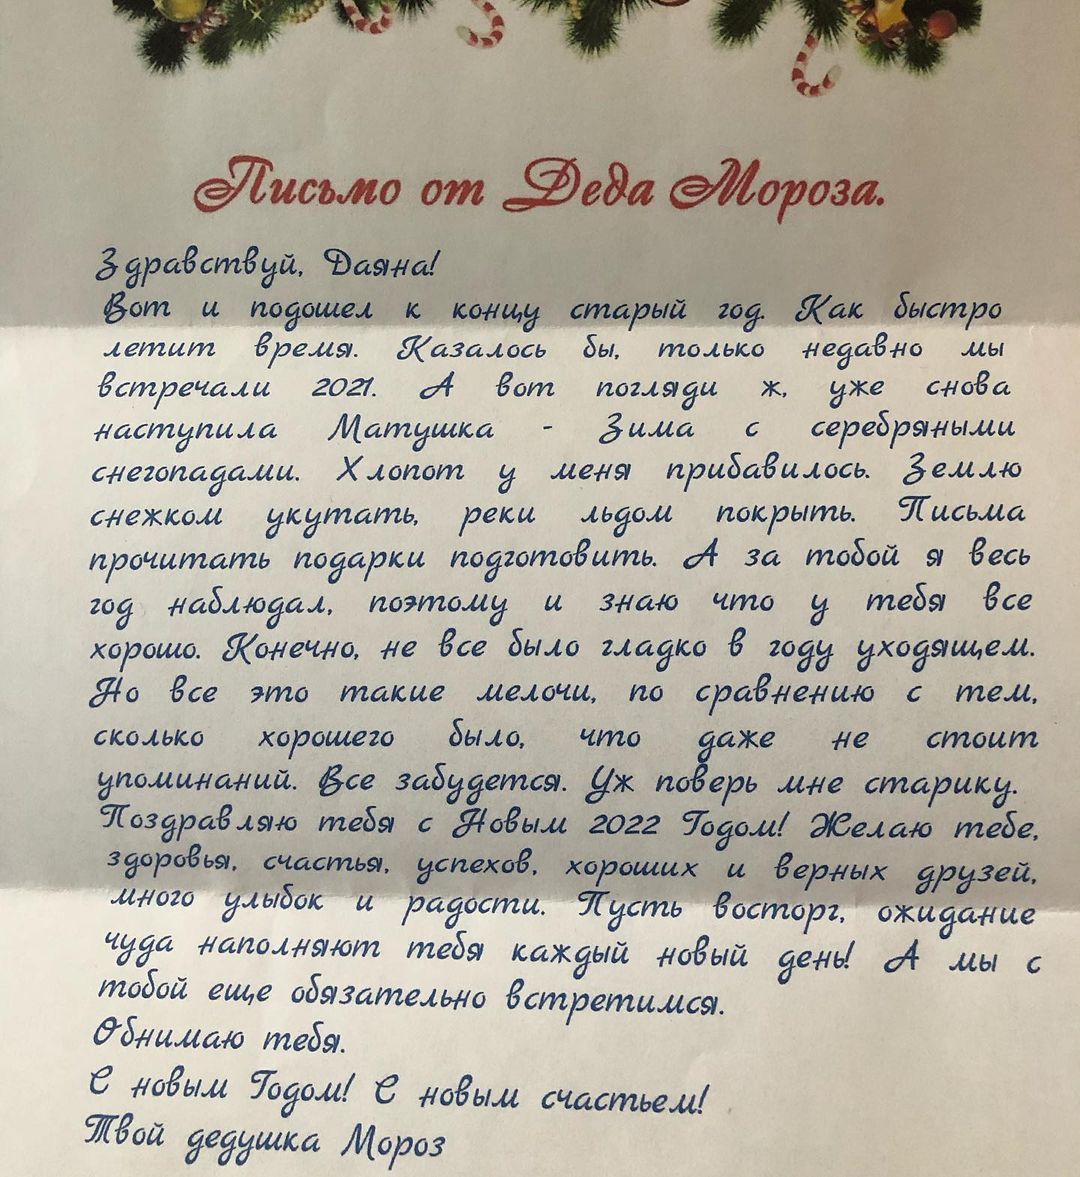 Письмо от Деда Мороза.
Здравствуй, Даяна!
Вот и подошел к концу старый год. Как быстро
летит время. Казалось бы, только недавно мы
встречали 2021. А вот погляди ж, уже снова
наступила Матушка - Зима с серебряными
снегопадами. Хлопот у меня прибавилось. Землю
снежком укутать, реки льдом покрыть. Письма
прочитать подарки подготовить. А за тобой я весь
год наблюдал, поэтому и знаю что у тебя все
хорошо. Конечно, не все было гладко в году уходящем.
Но все это такие мелочи, по сравнению с тем,
сколько хорошего было, что даже не стоит
упоминаний. Все забудется. Уж поверь мне старику.
Поздравляю тебя с Новым 2022 Годом! Желаю тебе,
здоровья, счастья, успехов, хороших и верных друзей,
много улыбок и радости. Пусть восторг, ожидание
чуда наполняют тебя каждый новый день! А мы с
тобой еще обязательно встретимся.
Обнимаю тебя.
С новым Годом! С новым счастьем!
Твой дедушка Мороз